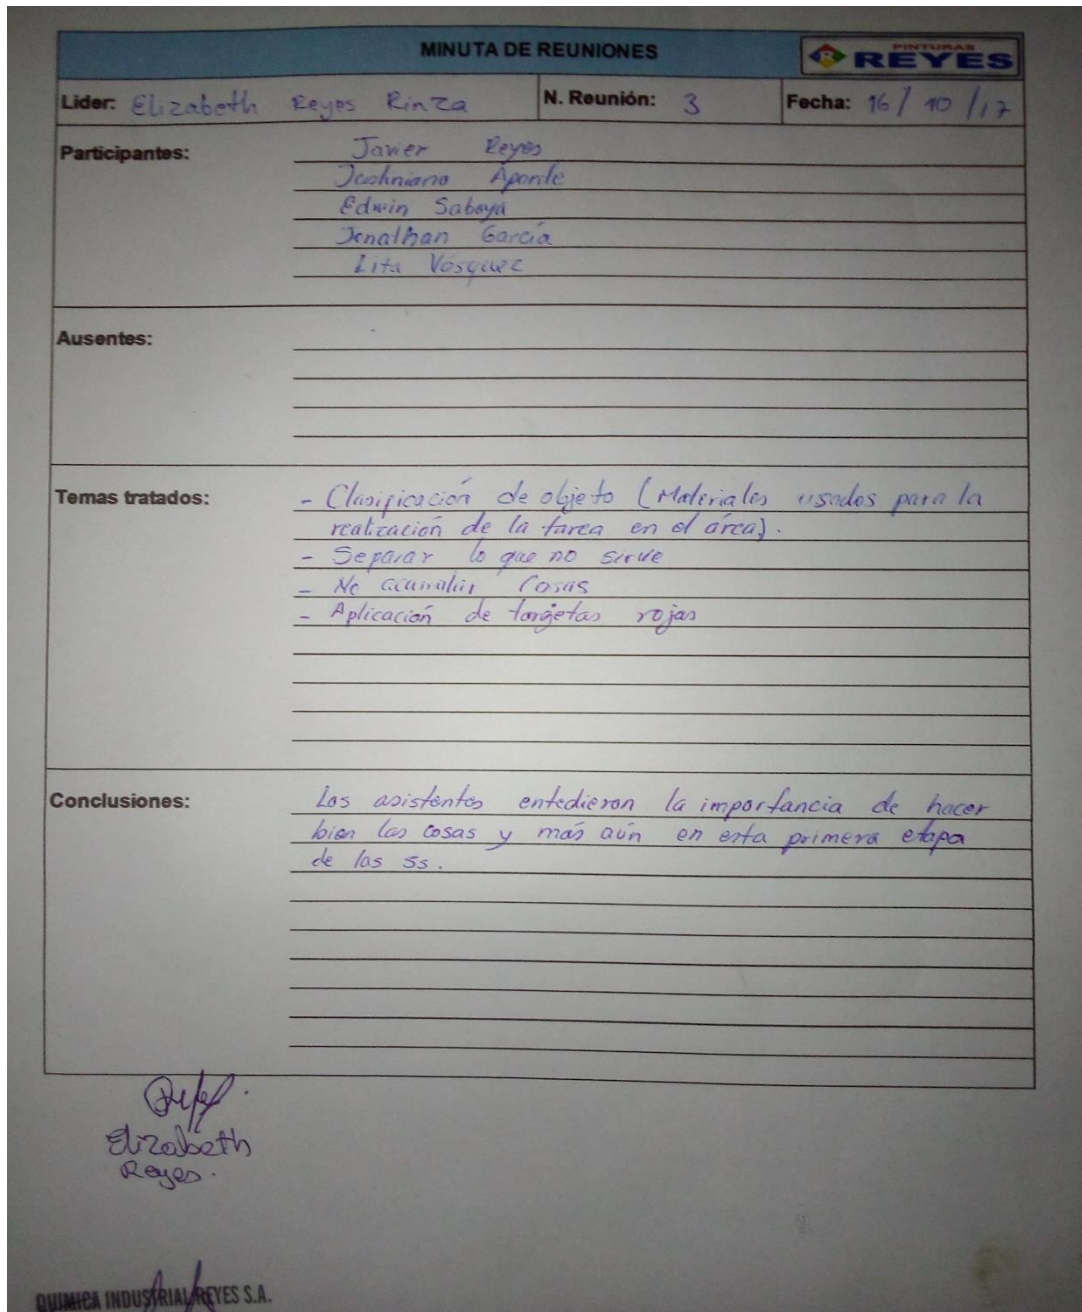 MINUTA DE REUNIONES
PINTURAS
REYES
Lider: Elizabeth Reyes Rinza N. Reunión: 3 Fecha: 16/10/17
Participantes: Javier Reyes
Aponte
Edwin Saboya
Jonathan García
Lita Vásquez
Ausentes:
Temas tratados: - Clasificación de objeto (Materiales usados para la
realización de la tarea en el área).
- Separar lo que no sirve
- No acumular cosas
- Aplicación de targetas rojas
Conclusiones: Los asistentes entedieron la importancia de hacer
bien las cosas y más aún en esta primera etapa
de las 5s.
Elizabeth
Reyes.
QUIMICA INDUSTRIAL REYES S.A.